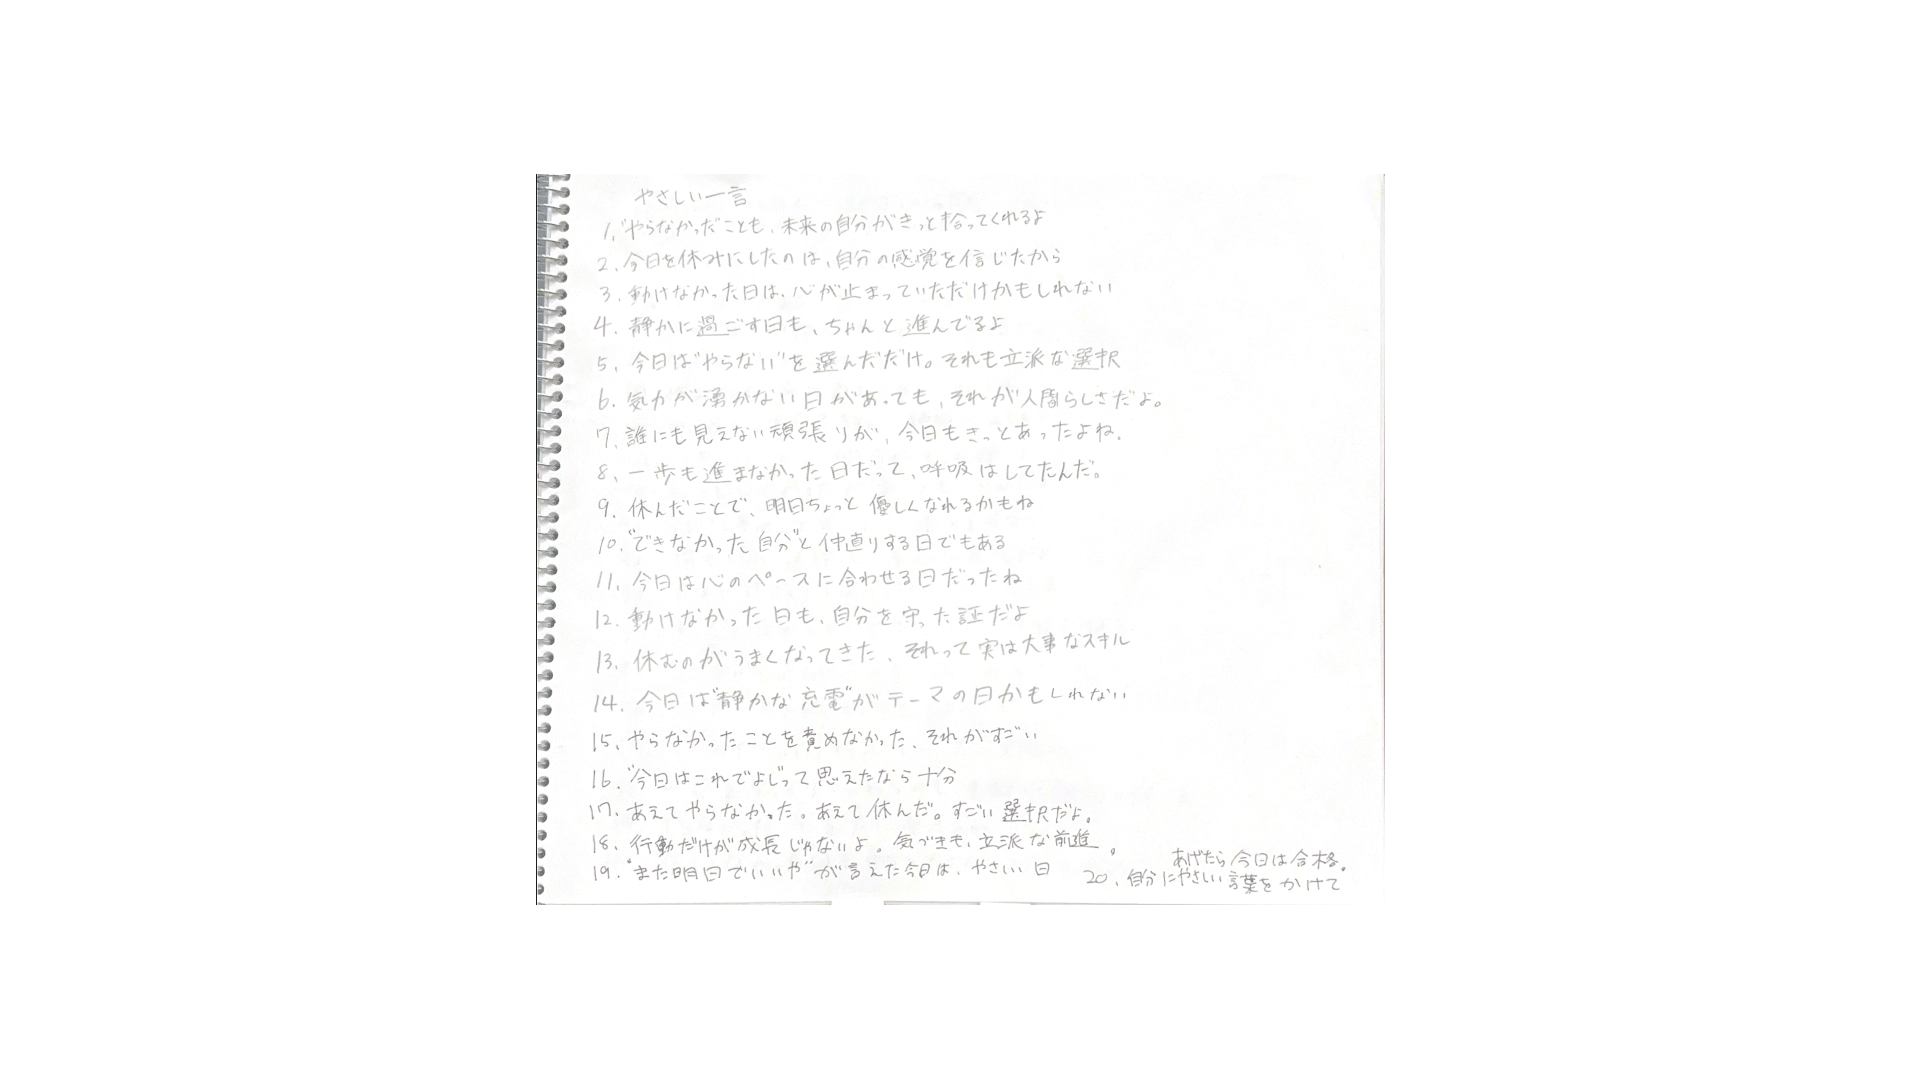 やさしい一言
1. "やらなかった"ことも、未来の自分がきっと拾ってくれるよ
2. 今日を休みにしたのは、自分の感覚を信じたから
3. 動けなかった日は、心が止まっていただけかもしれない
4. 静かに過ごす日も、ちゃんと進んでるよ
5. 今日は"やらない"を選んだだけ。それも立派な選択
6. 気力が湧かない日があっても、それが人間らしさだよ。
7. 誰にも見えない頑張りが、今日もきっとあったよね.
8. 一歩も進まなかった日だって、呼吸はしてたんだ。
9. 休んだことで、明日ちょっと優しくなれるかもね
10. "できなかった自分"と仲直りする日でもある
11. 今日は心のペースに合わせる日だったね
12. 動けなかった日も、自分を守った証だよ
13. 休むのがうまくなってきた、それって実は大事なスキル
14. 今日は"静かな充電"がテーマの日かもしれない
15. やらなかったことを責めなかった、それがすごい
16. "今日はこれでよし"って思えたなら十分
17. あえてやらなかった。あえて休んだ。すごい選択だよ。
18. 行動だけが成長じゃないよ。気づきも、立派な前進。
19. "また明日でいいや"が言えた今日は、やさしい日
20. 自分にやさしい言葉をかけて
あげたら今日は合格。